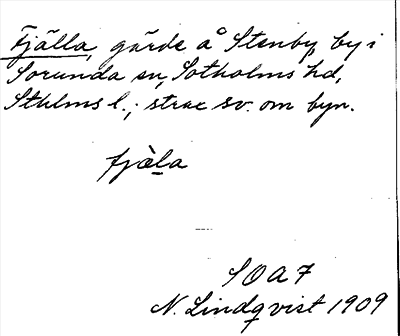 Fjälla, gärde å Stenby, by i
Sorunda sn, Sotholms hd,
Sthlms l.; strax sv. om byn.
fjäla
SOA7
N. Lindqvist 1909